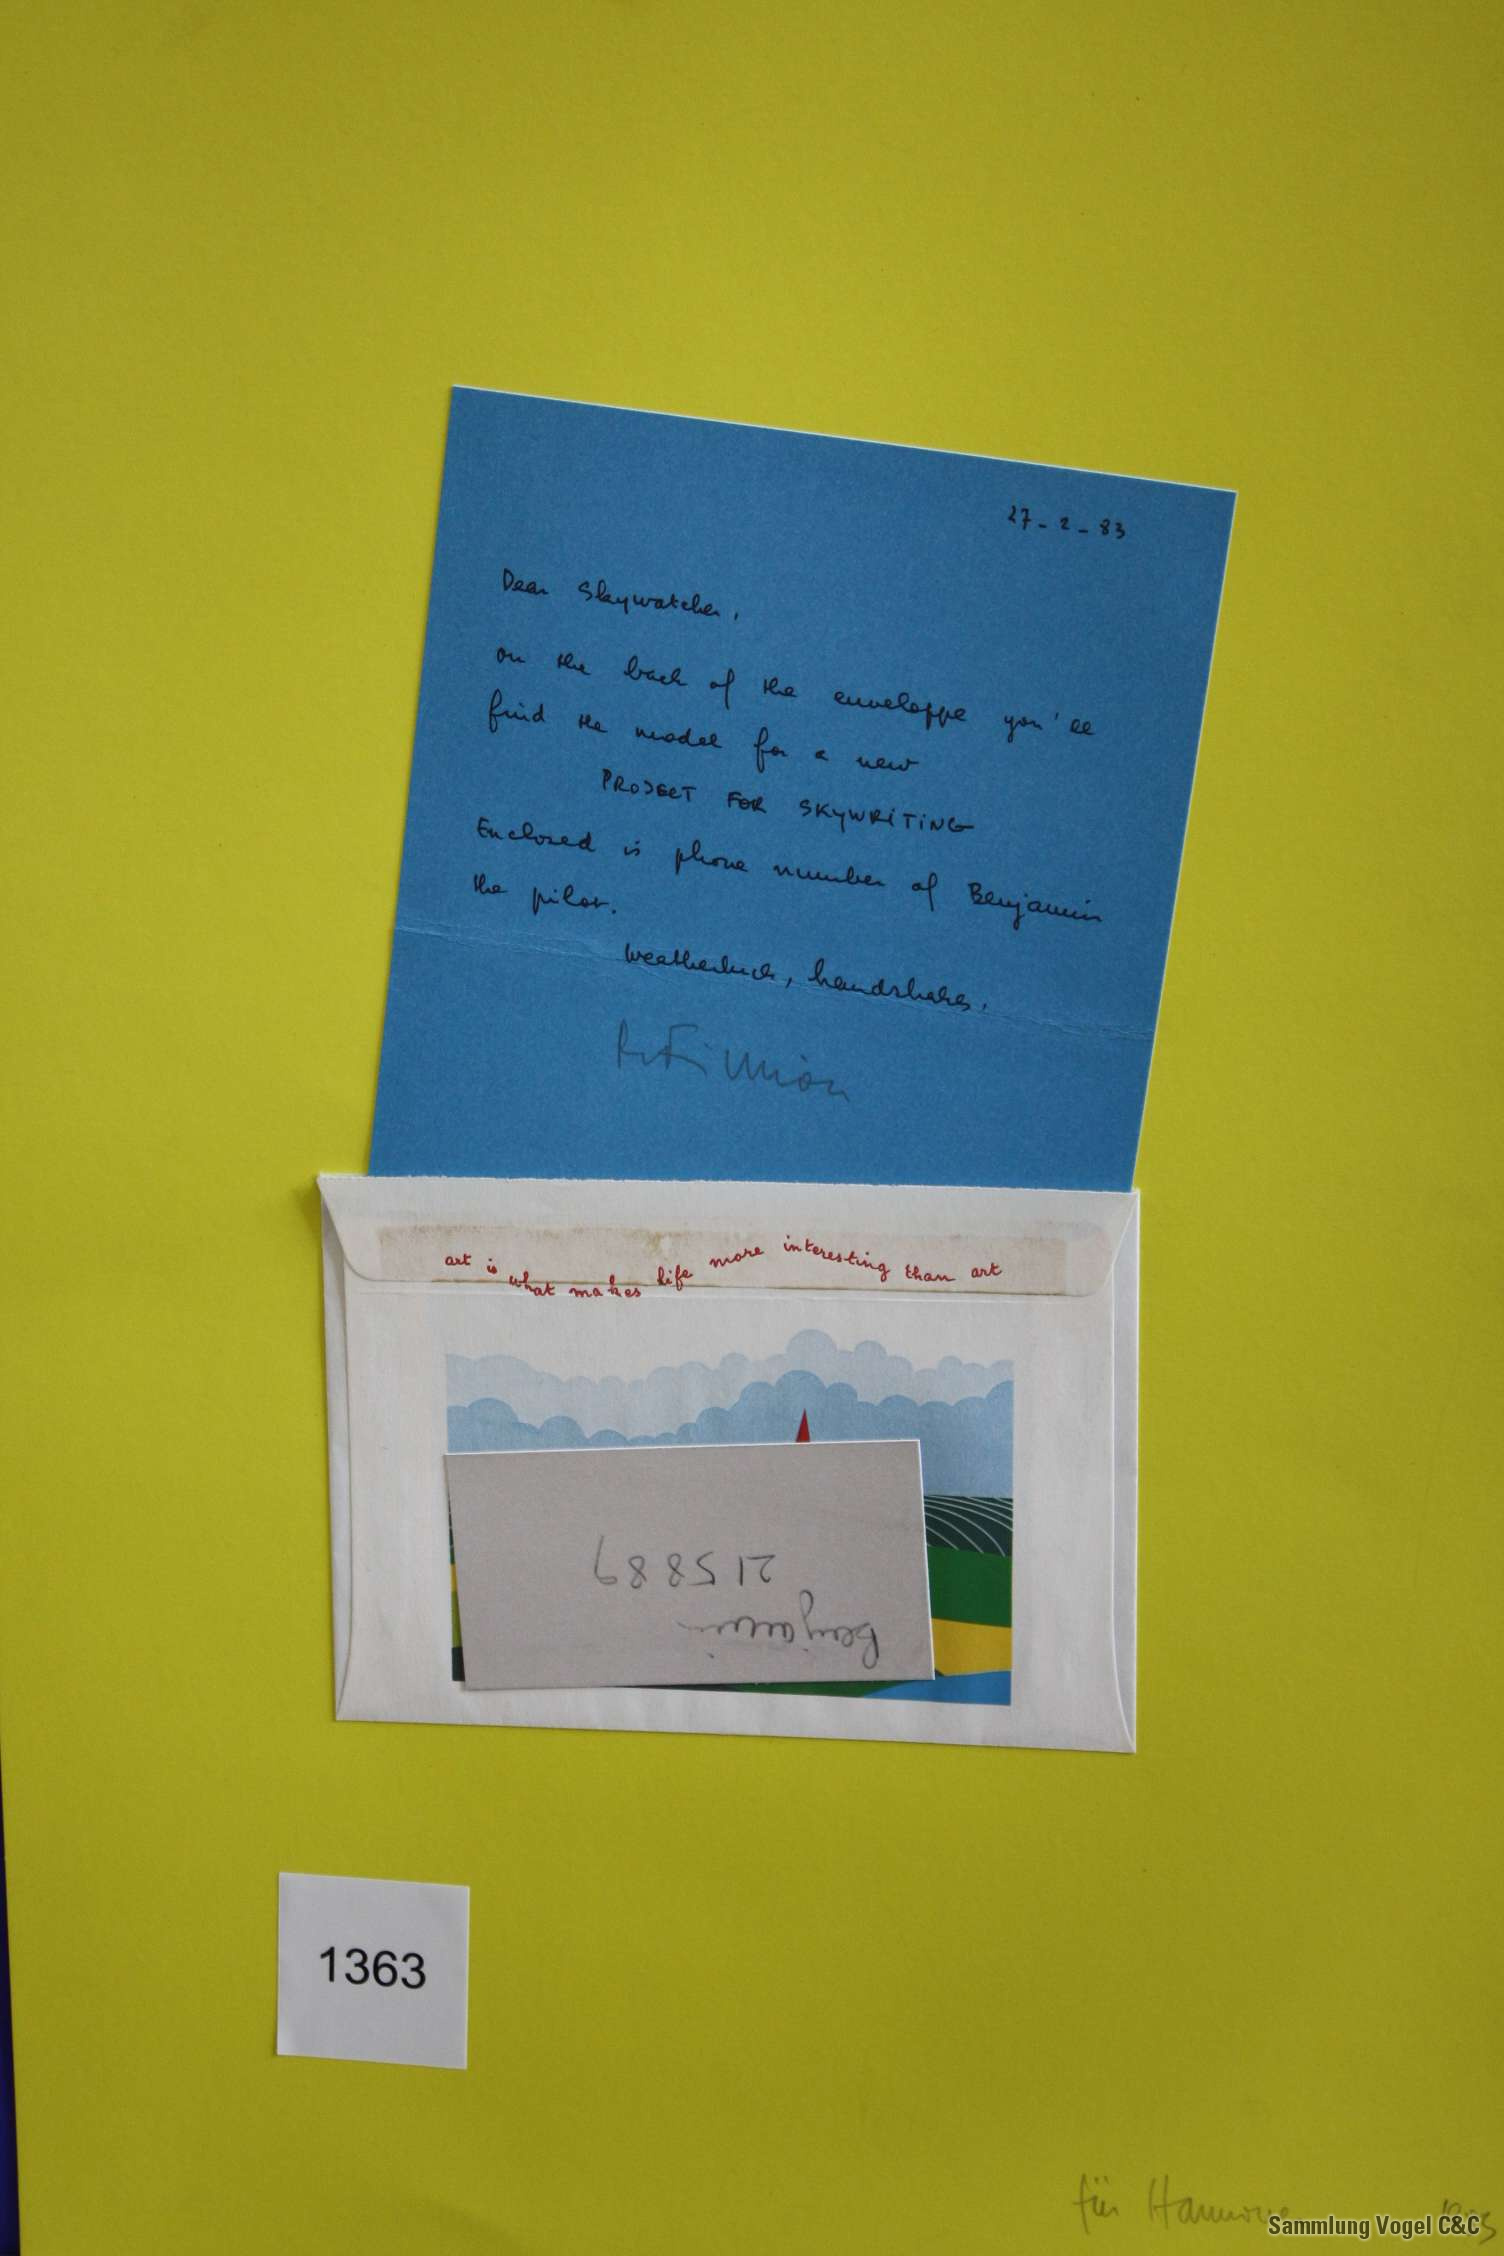 27-2-83
Dear Skywatcher,
on the back of the enveloppe you'll
find the model for a new
PROJECT FOR SKYWRiTiNG
Enclosed is phone number of Benjamin
the pilot.
Weatherluck, handshakes,
art is what makes life more interesting than art
Benjamin
215889
1363
für
Sammlung Vogel C&C